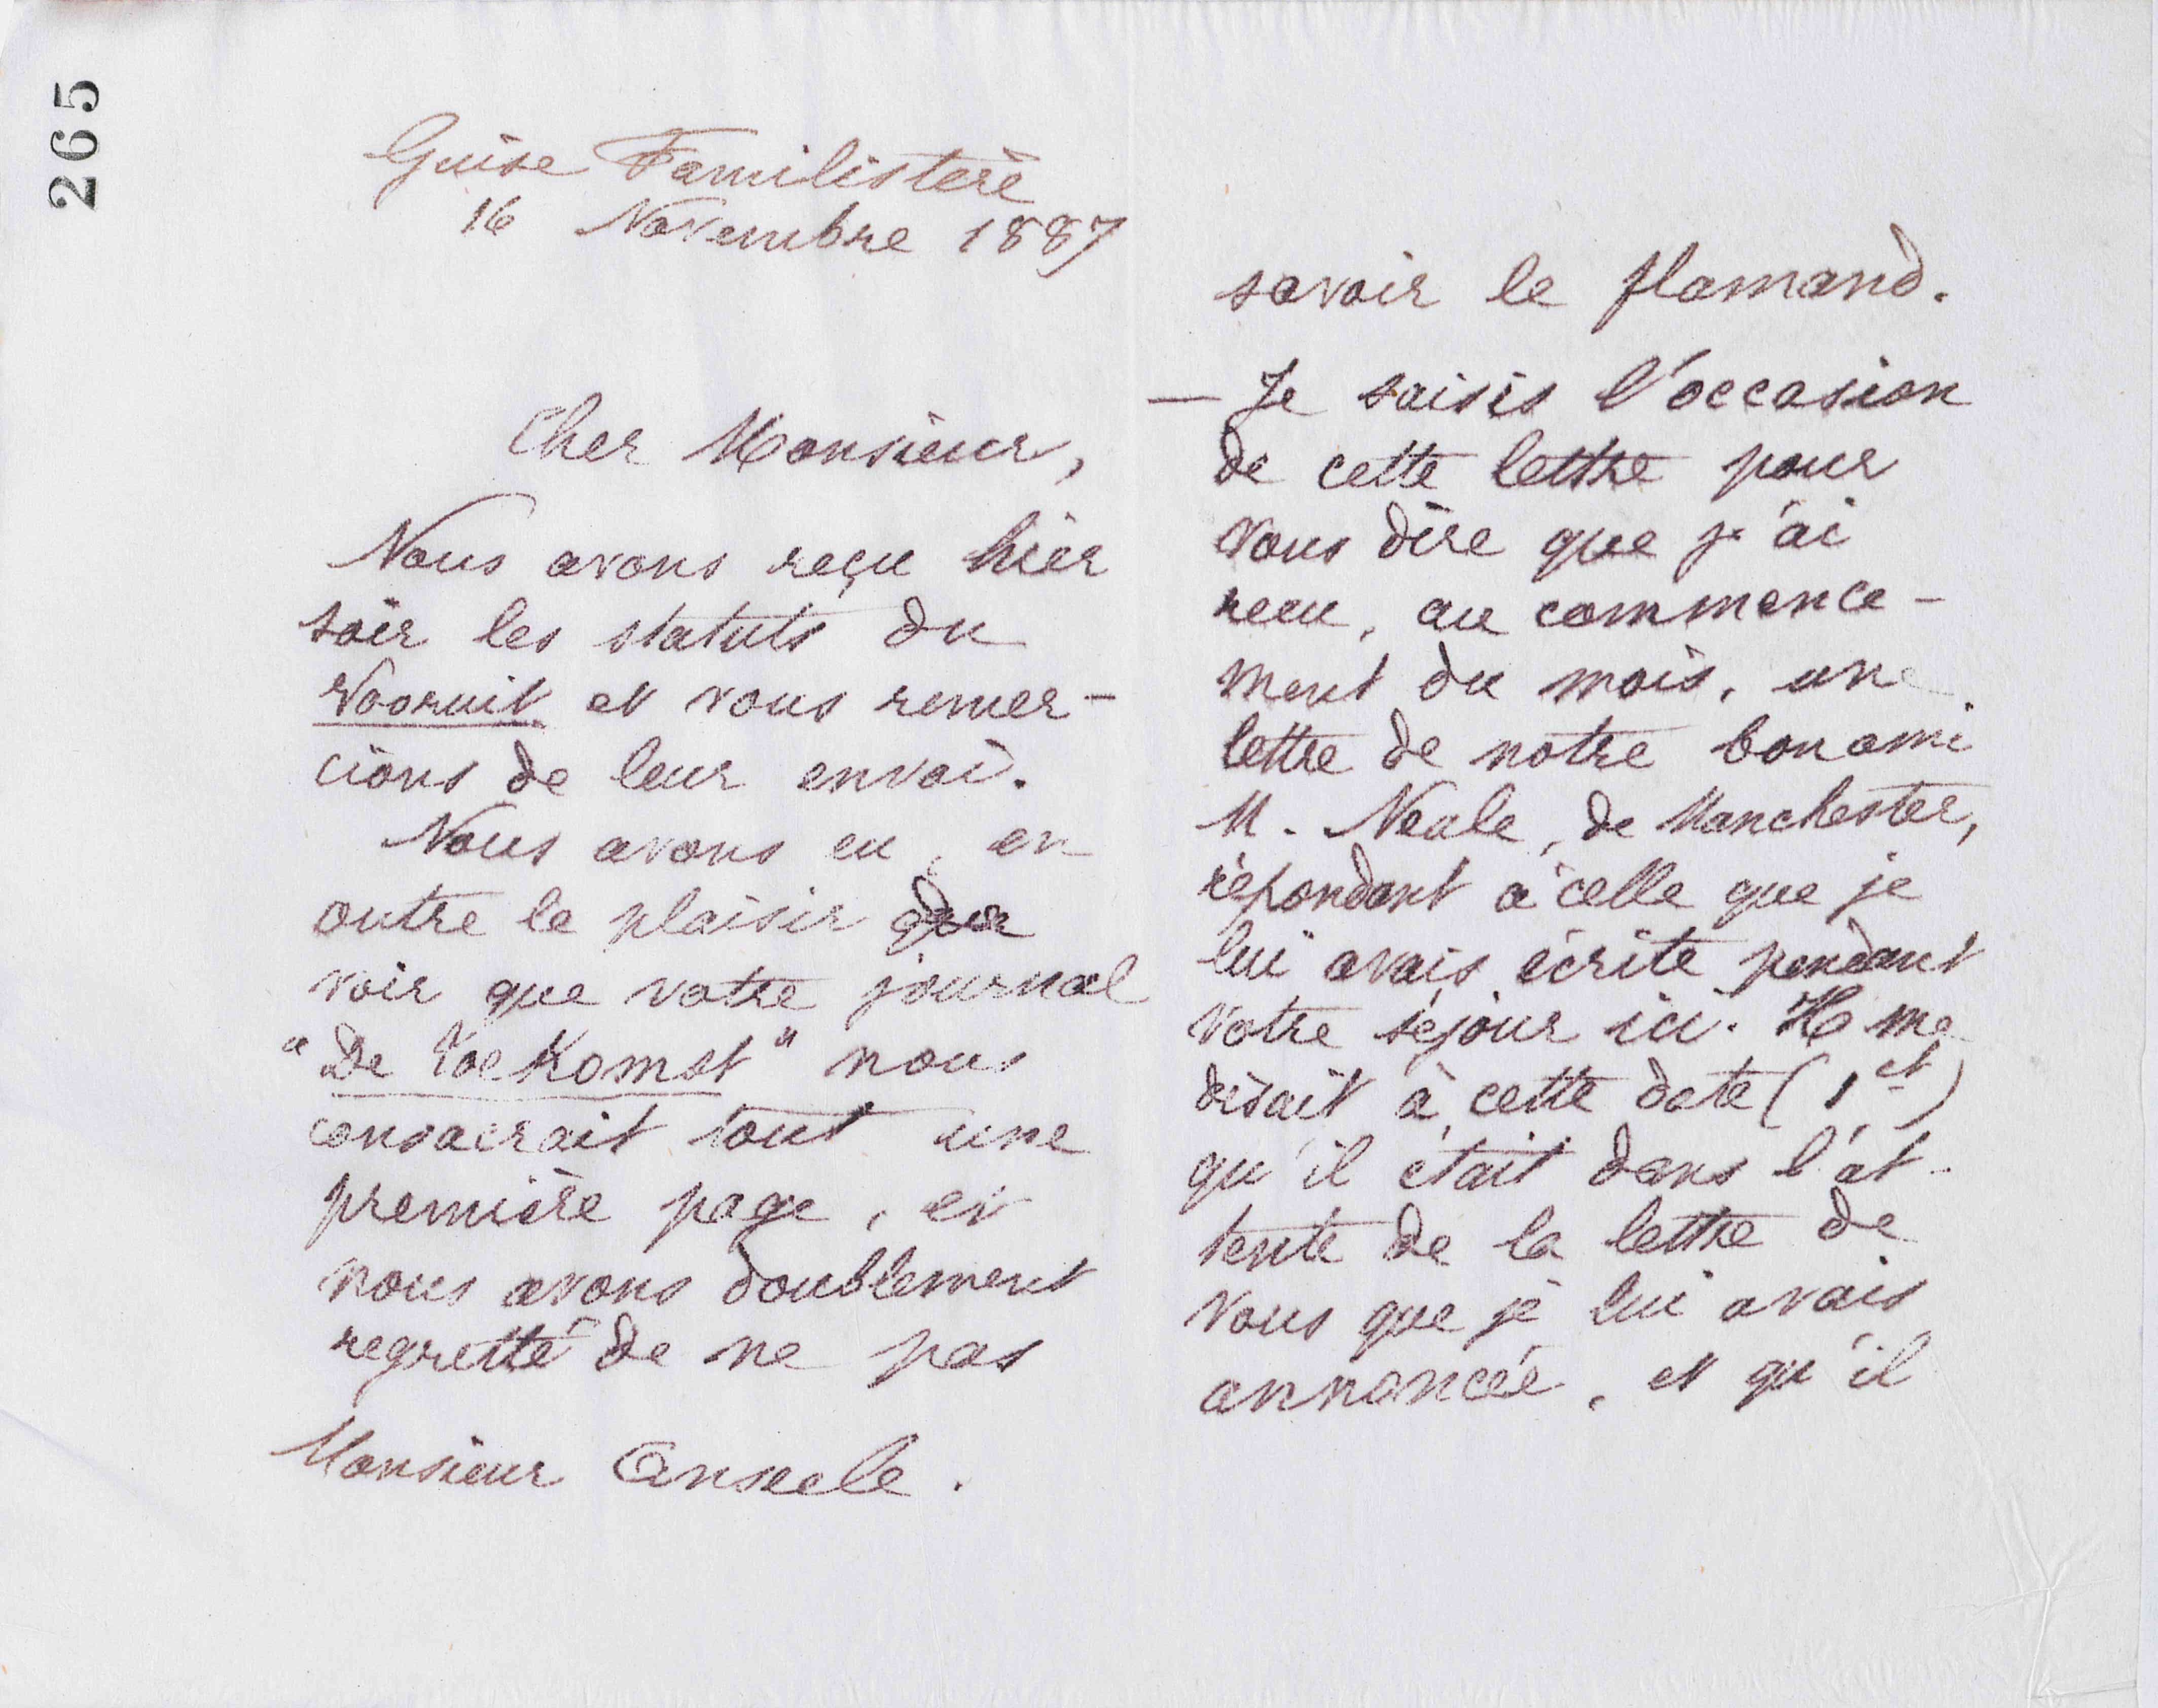 265
Guise Familistère
16 Novembre 1887
Cher Monsieur,
Nous avons reçu hier
soir les statuts du
Vooruit et vous remer-
cions de leur envoi.
Nous avons eu, en
outre le plaisir de
voir que votre journal
"De Toekomst" nous
consacrait tout une
première page, et
nous avons doublement
regretté de ne pas
Monsieur Anseele.
savoir le flamand.
— Je saisis l'occasion
de cette lettre pour
vous dire que j'ai
recu, au commence-
ment du mois, une
lettre de notre bon ami
M. Neale, de Manchester,
répondant à celle que je
lui avais écrite pendant
votre séjour ici. Il me
disait à cette date (1er)
qu'il était dans l'at-
tente de la lettre de
vous que je lui avais
annoncée, et qu'il